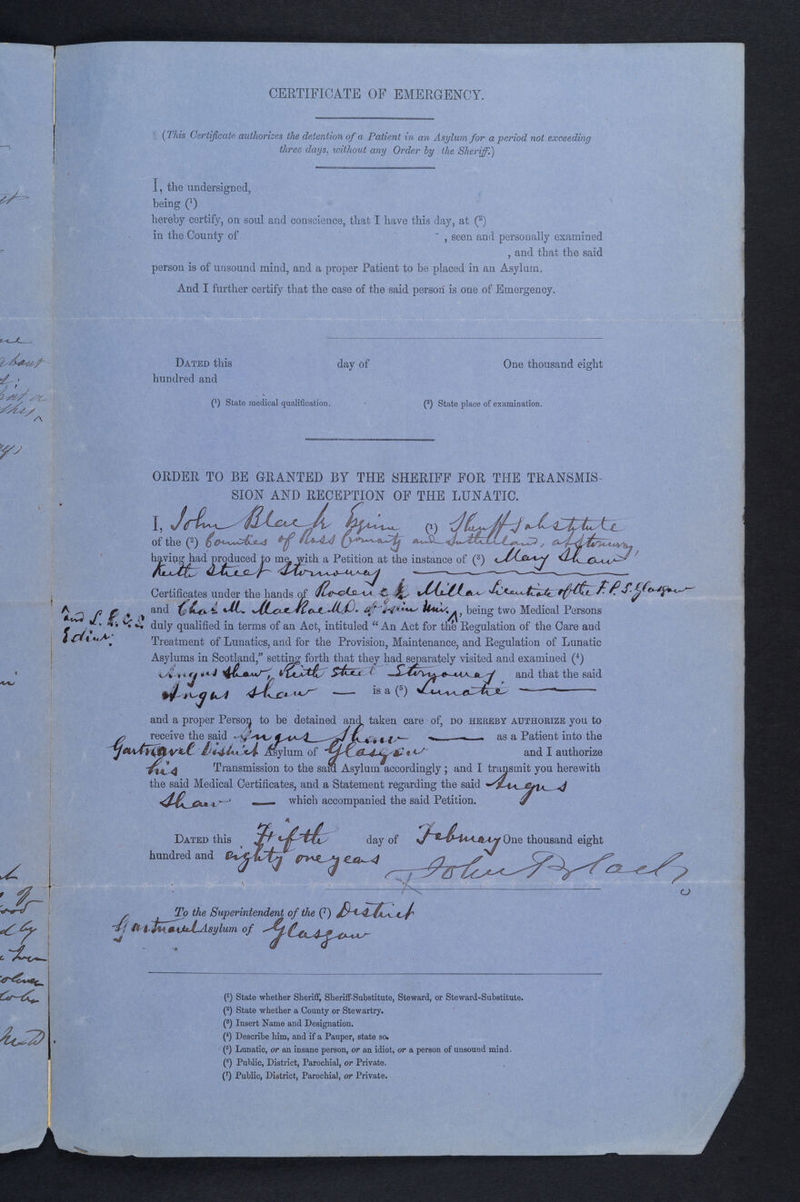 CERTIFICATE OF EMERGENCY.
(This Certificate authorizes the detention of a Patient in an Asylum for a period not exceeding
three days, without any Order by the Sheriff.)
I, the undersigned,
being (¹)
hereby certify, on soul and conscience, that I have this day, at (²)
in the County of , seen and personally examined
, and that the said
person is of unsound mind, and a proper Patient to be placed in an Asylum.
And I further certify that the case of the said person is one of Emergency.
DATED this day of One thousand eight
hundred and
(¹) State medical qualification. (²) State place of examination.
ORDER TO BE GRANTED BY THE SHERIFF FOR THE TRANSMIS-
SION AND RECEPTION OF THE LUNATIC.
I, John Black Esquire (¹) Sheriff Substitute
of the (²) Counties of Ross Cromarty and Sutherland, at Stornoway
having had produced to me, with a Petition at the instance of (³) Mary Shaw,
Keith Street Stornoway
Certificates under the hands of Roderick Millar Licentiate of the F.P.S. Glasgow
and L.R.C.S. Edinr. and Chas M. MacRae M.D. of Univ., being two Medical Persons
duly qualified in terms of an Act, intituled "An Act for the Regulation of the Care and
Treatment of Lunatics, and for the Provision, Maintenance, and Regulation of Lunatic
Asylums in Scotland," setting forth that they had separately visited and examined (⁴)
Angus Shaw, Keith Street Stornoway, and that the said
Angus Shaw is a (⁵) Lunatic
and a proper Person to be detained and taken care of, DO HEREBY AUTHORIZE you to
receive the said Angus Shaw as a Patient into the
Gartnavel District Asylum of Glasgow and I authorize
his Transmission to the said Asylum accordingly; and I transmit you herewith
the said Medical Certificates, and a Statement regarding the said Angus
Shaw which accompanied the said Petition.
DATED this Fifth day of February One thousand eight
hundred and eighty one years John Black
To the Superintendent of the (⁷) District
Gartnavel Asylum of Glasgow
(¹) State whether Sheriff, Sheriff-Substitute, Steward, or Steward-Substitute.
(²) State whether a County or Stewartry.
(³) Insert Name and Designation.
(⁴) Describe him, and if a Pauper, state so.
(⁵) Lunatic, or an insane person, or an idiot, or a person of unsound mind.
(⁶) Public, District, Parochial, or Private.
(⁷) Public, District, Parochial, or Private.